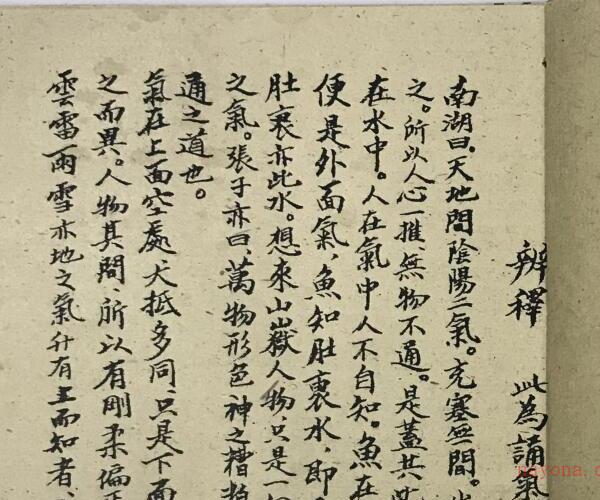 辨釋 此為誦氣
南湖曰。天地間陰陽二氣。充塞無間。
之。所以人心一推、無物不通。是蓋共
在水中。人在氣中人不自知。魚在
便是外面氣、魚知肚裏水、即
肚裏亦此水。想來山嶽人物、只是一
之氣。張子亦曰、萬物形色神之糟
通之道也。
氣在上面空處、大抵多同、只是下面
之而異。人物其間、所以有剛柔偏
雲雷雨雪亦地之氣升有主而知者、
nayona.c